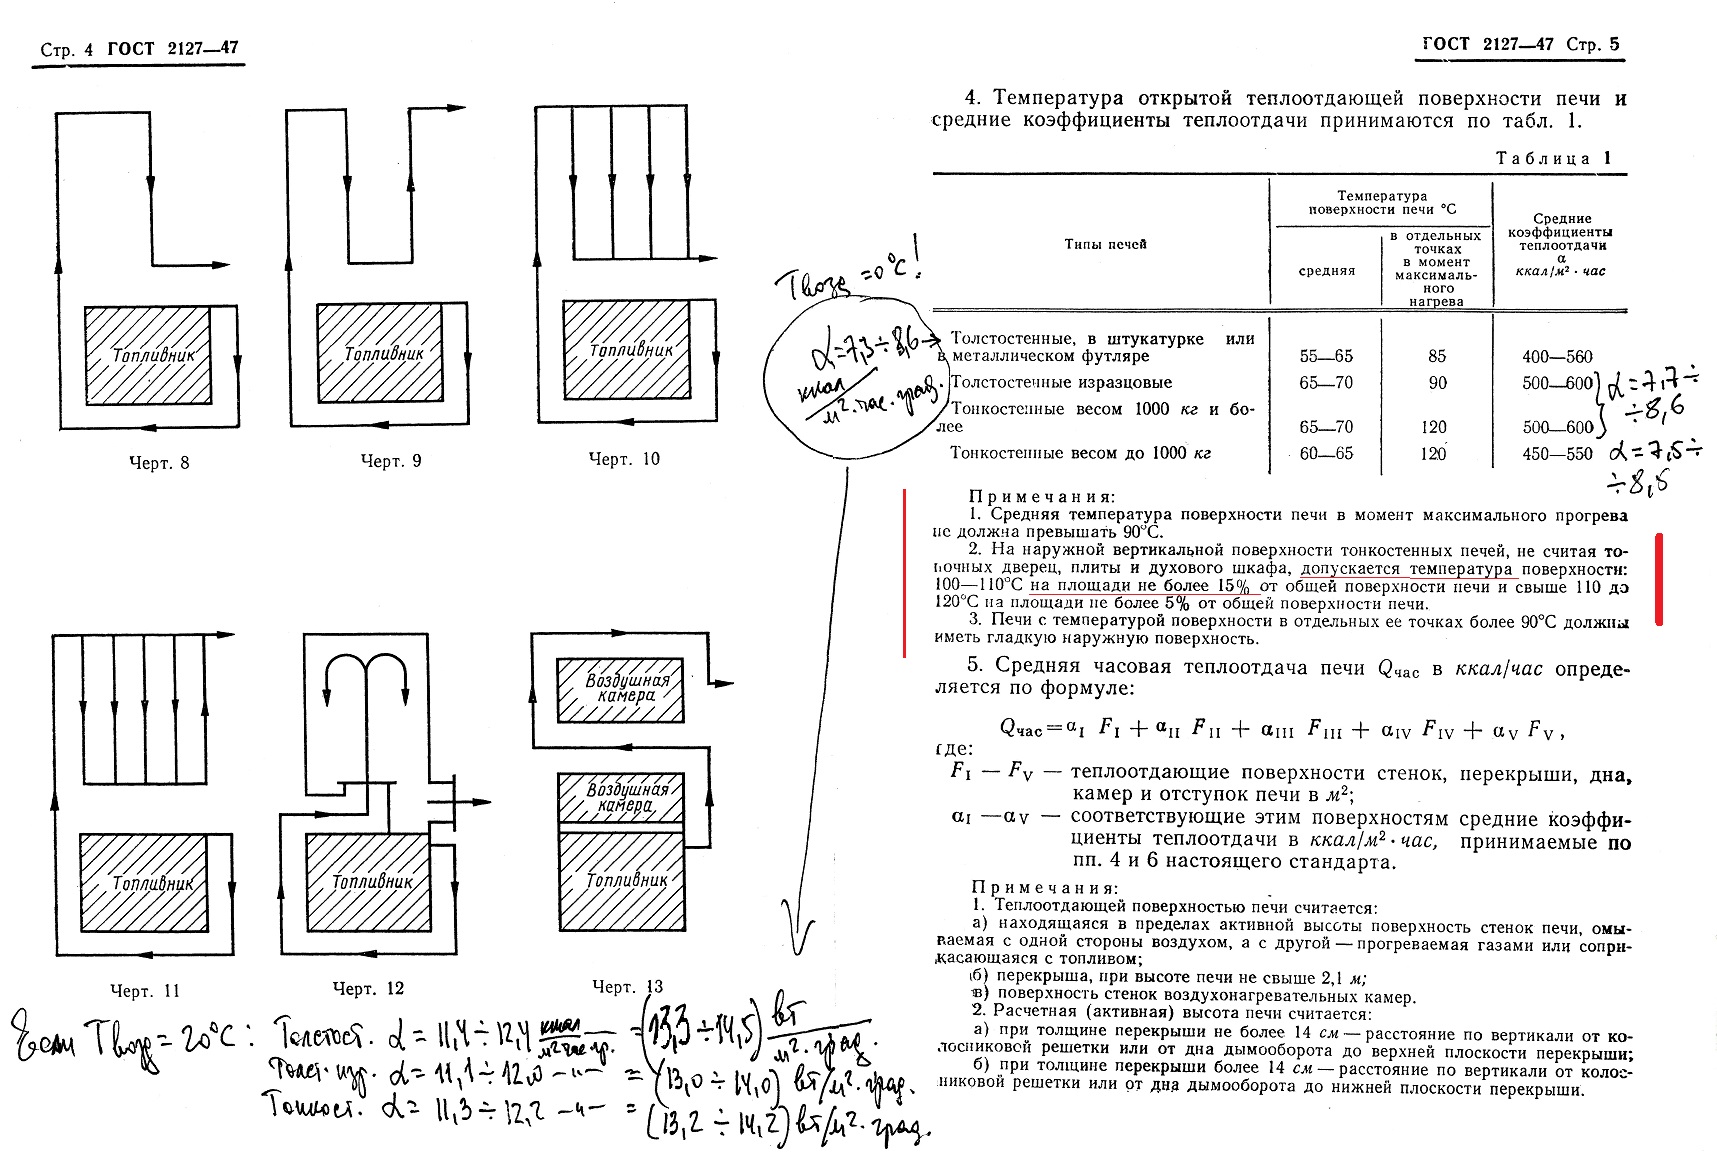 Стр. 4 ГОСТ 2127—47
Топливник
Черт. 8
Топливник
Черт. 9
Топливник
Черт. 10
Топливник
Черт. 11
Топливник
Черт. 12
Воздушная
камера
Воздушная
камера
Топливник
Черт. 13
Tвозд =0°C!
α=7,3÷8,6
ккал
м²·час·град.
Если Tвозд = 20°C:
Толстост. α = 11,4÷12,4 ккал/м²час гр. = (13,3÷14,5) вт/м²·град.
Толст. изр. α = 11,1÷12,0 –"– = (13,0÷14,0) вт/м²·град.
Тонкост. α = 11,3÷12,2 –"– = (13,2÷14,2) вт/м²·град.
ГОСТ 2127—47 Стр. 5
4. Температура открытой теплоотдающей поверхности печи и
средние коэффициенты теплоотдачи принимаются по табл. 1.
Таблица 1
Типы печей
Температура
поверхности печи °С
средняя
в отдельных
точках
в момент
максималь-
ного
нагрева
Средние
коэффициенты
теплоотдачи
α
ккал/м² · час
Толстостенные, в штукатурке или
в металлическом футляре 55—65 85 400—560
Толстостенные изразцовые 65—70 90 500—600
Тонкостенные весом 1000 кг и бо-
лее 65—70 120 500—600
Тонкостенные весом до 1000 кг 60—65 120 450—550
α=7,7÷
÷8,6
α=7,5÷
÷8,5
Примечания:
1. Средняя температура поверхности печи в момент максимального прогрева
не должна превышать 90°С.
2. На наружной вертикальной поверхности тонкостенных печей, не считая то-
почных дверец, плиты и духового шкафа, допускается температура поверхности:
100—110°С на площади не более 15% от общей поверхности печи и свыше 110 до
120°С на площади не более 5% от общей поверхности печи.
3. Печи с температурой поверхности в отдельных ее точках более 90°С должны
иметь гладкую наружную поверхность.
5. Средняя часовая теплоотдача печи Qчас в ккал/час опреде-
ляется по формуле:
Qчас = αI FI + αII FII + αIII FIII + αIV FIV + αV FV,
где:
FI — FV — теплоотдающие поверхности стенок, перекрыши, дна,
камер и отступок печи в м²;
αI — αV — соответствующие этим поверхностям средние коэффи-
циенты теплоотдачи в ккал/м² · час, принимаемые по
пп. 4 и 6 настоящего стандарта.
Примечания:
1. Теплоотдающей поверхностью печи считается:
а) находящаяся в пределах активной высоты поверхность стенок печи, омы-
ваемая с одной стороны воздухом, а с другой — прогреваемая газами или сопри-
касающаяся с топливом;
б) перекрыша, при высоте печи не свыше 2,1 м;
в) поверхность стенок воздухонагревательных камер.
2. Расчетная (активная) высота печи считается:
а) при толщине перекрыши не более 14 см — расстояние по вертикали от ко-
лосниковой решетки или от дна дымооборота до верхней плоскости перекрыши;
б) при толщине перекрыши более 14 см — расстояние по вертикали от колос-
никовой решетки или от дна дымооборота до нижней плоскости перекрыши.